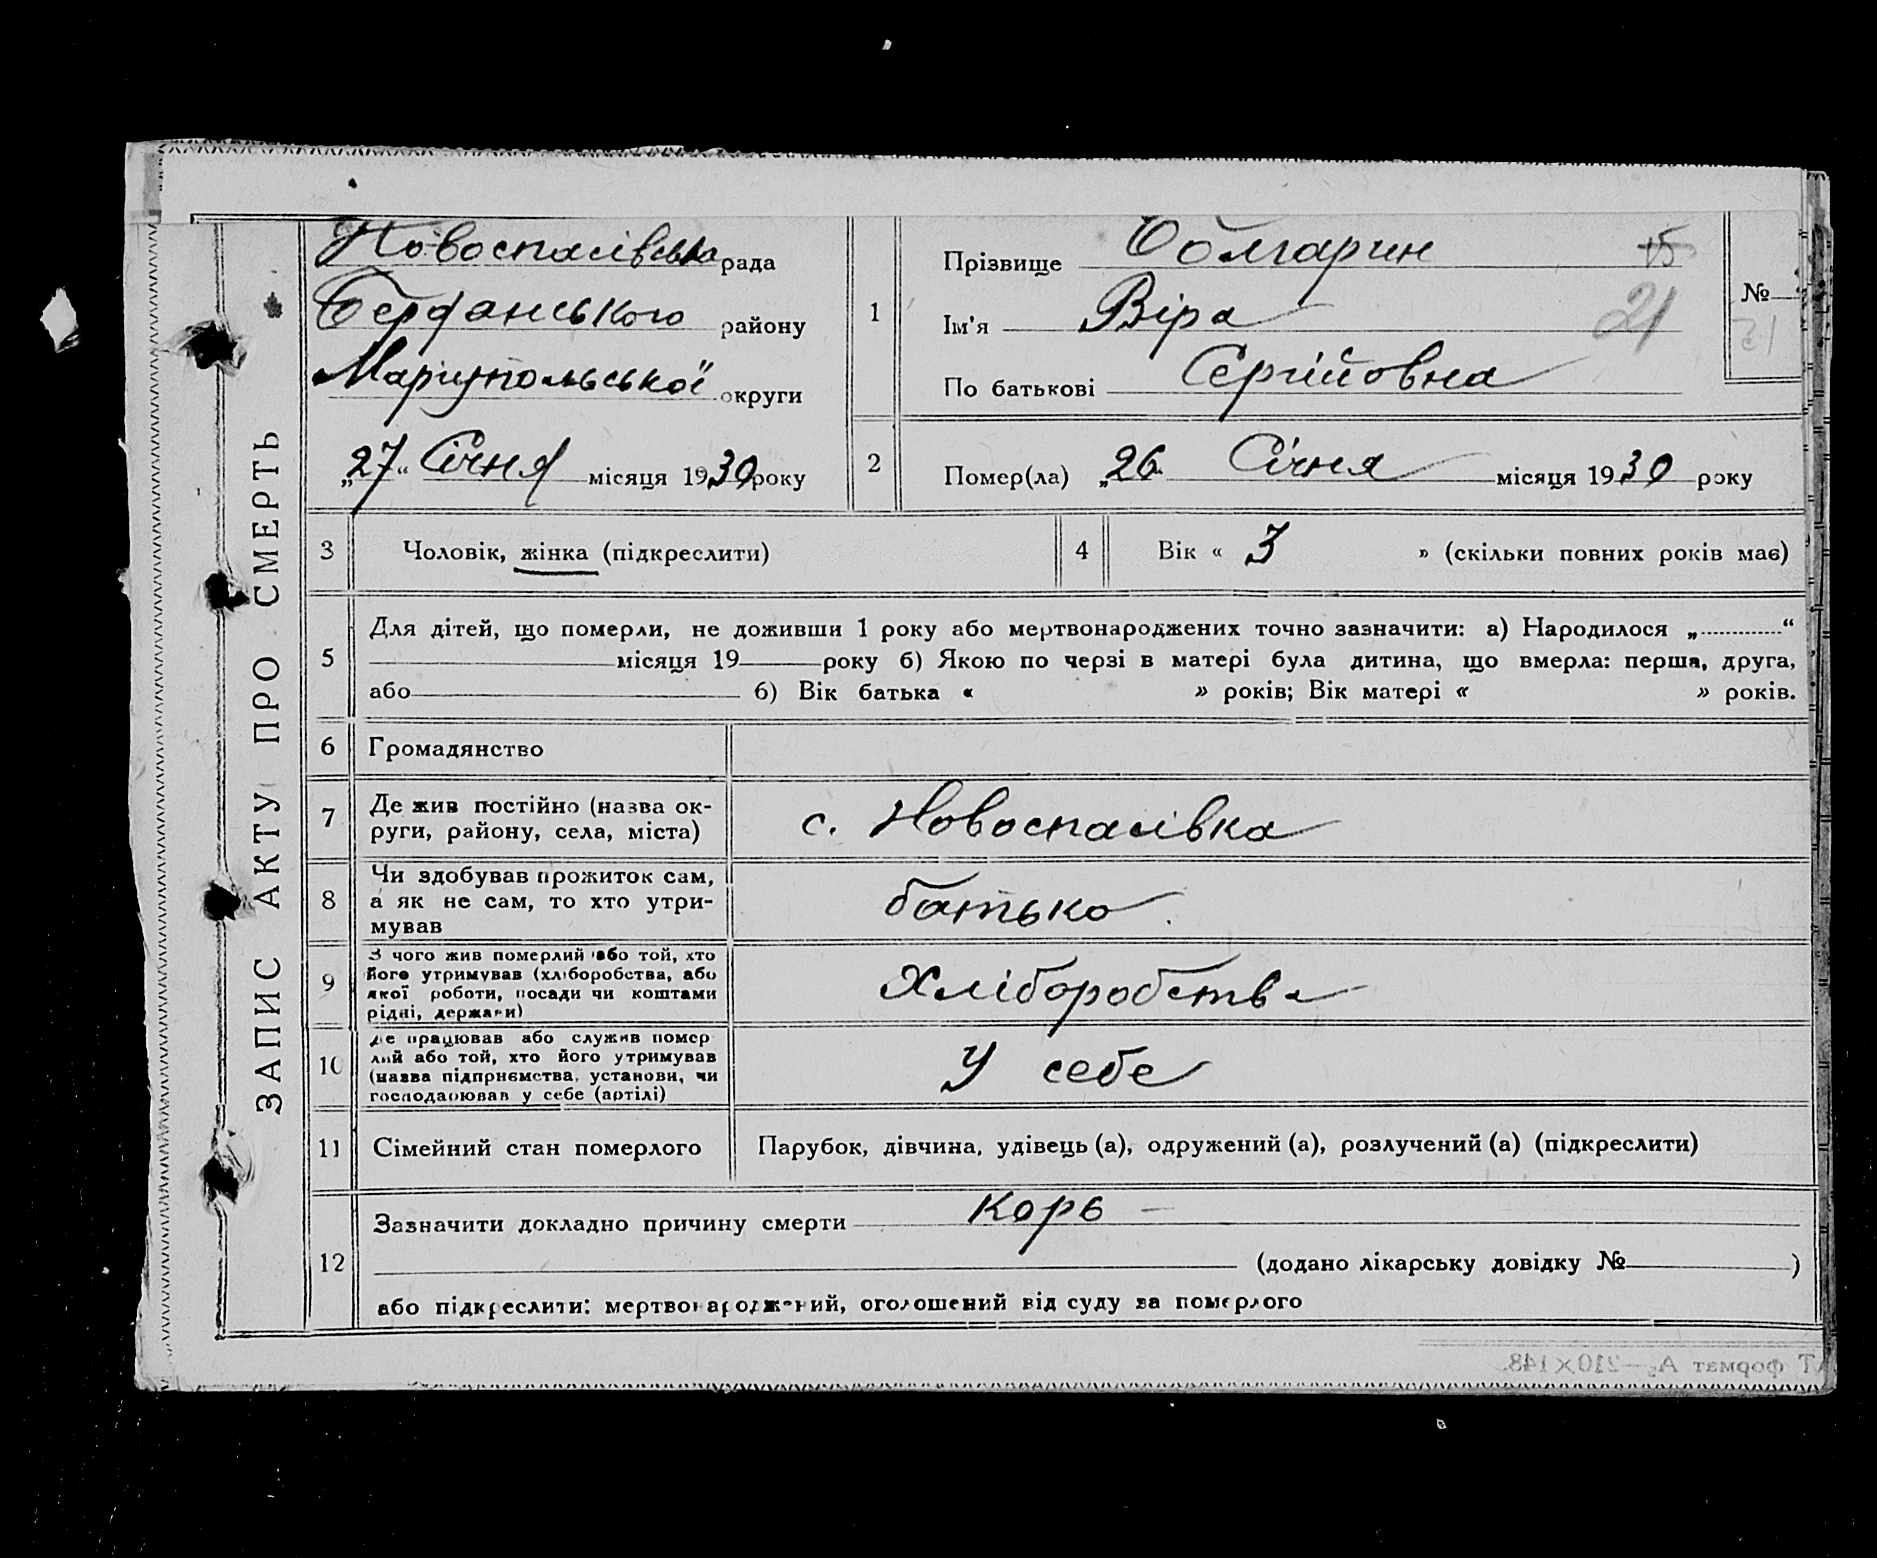 ЗАПИС АКТУ ПРО СМЕРТЬ
Новоспасівська рада
Бердянського району
Маріупольської округи
„27“ Січня місяця 1930 року
1
Прізвище Болгарин
15
Ім'я Віра
21
По батькові Сергійовна
№
2
Помер(ла) „26 Січня місяця 1930 року
3 Чоловік, жінка (підкреслити)
4 Вік « 3 » (скільки повних років має)
5
Для дітей, що померли, не доживши 1 року або мертвонароджених точно зазначити: а) Народилося „.............“
місяця 19 року б) Якою по черзі в матері була дитина, що вмерла: перша, друга,
або б) Вік батька « » років; Вік матері « » років.
6 Громадянство
7
Де жив постійно (назва ок-
руги, району, села, міста)
с. Новоспасівка
8
Чи здобував прожиток сам,
а як не сам, то хто утри-
мував
батько
9
З чого жив померлий або той, хто
його утримував (хліборобства, або
якої роботи, посади чи коштами
рідні, держави)
Хліборобства
10
Де працював або служив помер
лий або той, хто його утримував
(назва підприємства, установи, чи
господарював у себе (артілі)
У себе
11 Сімейний стан померлого
Парубок, дівчина, удівець (а), одружений (а), розлучений (а) (підкреслити)
12
Зазначити докладно причину смерти корь
(додано лікарську довідку № )
або підкреслити: мертвонароджений, оголошений від суду за померлого